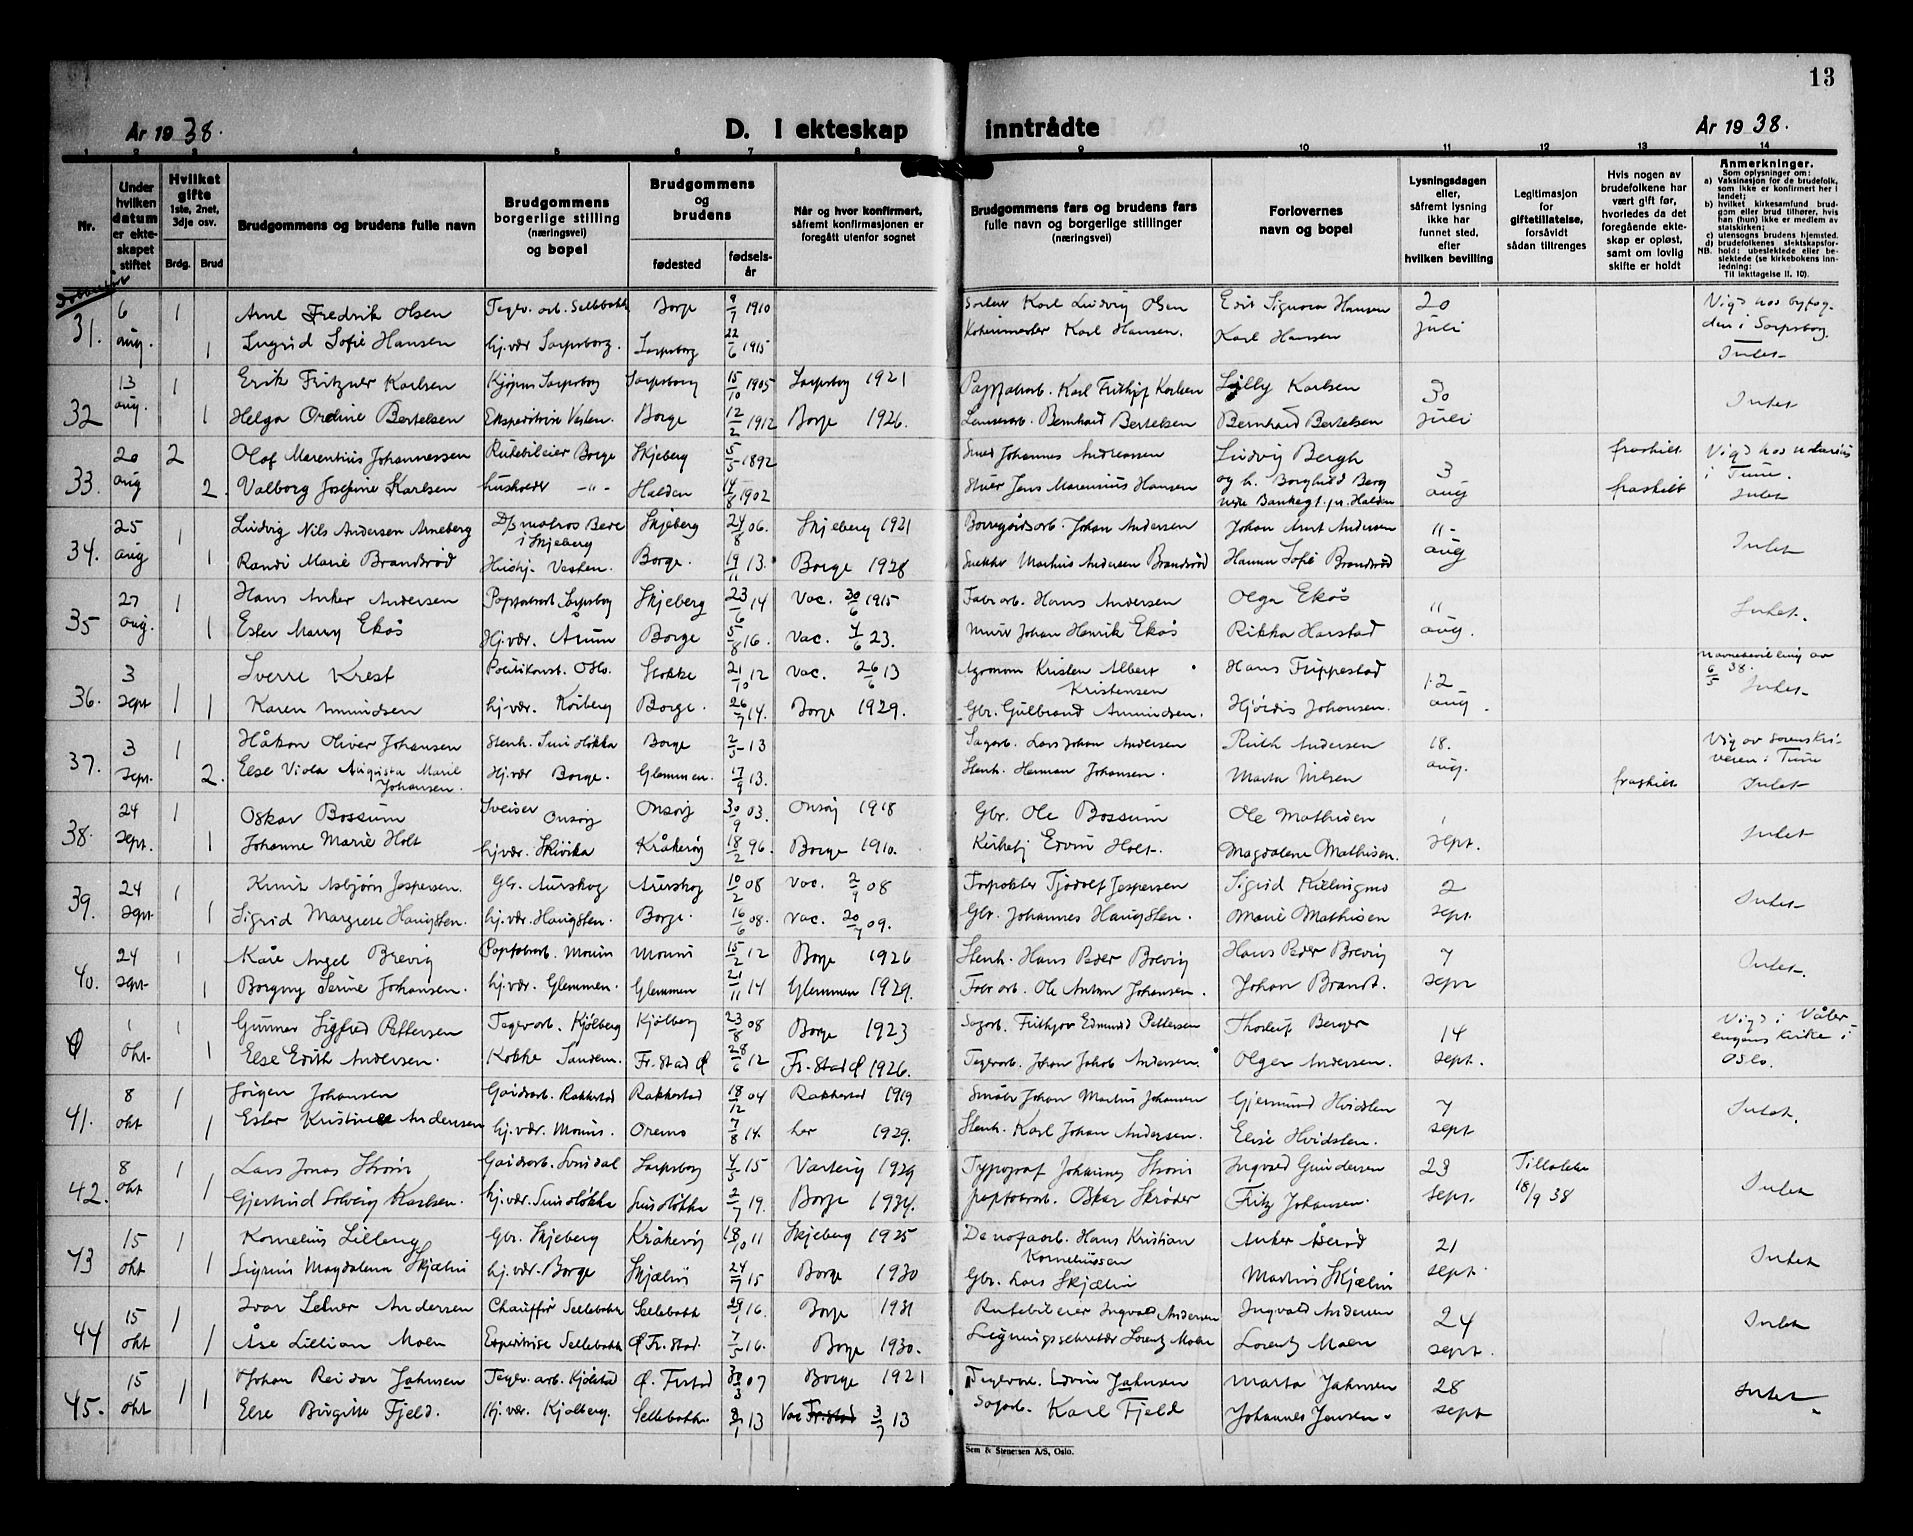 13
År 1938.
D. I ekteskap inntrådte
År 1938.
1 2 3 4 5 6 7 8 9 10 11 12 13 14
Nr.
Under hvilken datum er ekteskapet stiftet
Hvilket gifte 1ste, 2net, 3dje osv.
Brdg. Brud
Brudgommens og brudens fulle navn
Brudgommens borgerlige stilling (næringsvei) og bopel
Brudgommens og brudens
fødested
fødselsår
Når og hvor konfirmert, såfremt konfirmasjonen er foregått utenfor sognet
Brudgommens fars og brudens fars fulle navn og borgerlige stillinger (næringsvei)
Forlovernes navn og bopel
Lysningsdagen eller, såfremt lysning ikke har funnet sted, efter hvilken bevilling
Legitimasjon for giftetillatelse, forsåvidt sådan tiltrenges
Hvis nogen av brudefolkene har vært gift før, hvorledes da det foregående ekteskap er opløst, samt om lovlig skifte er holdt
Anmerkninger.
Som oplysninger om:
a) Vaksinasjon for de brudefolk, som ikke er konfirmert her i landet;
b) hvilket kirkesamfund brudgom eller brud tilhører, hvis han (hun) ikke er medlem av statskirken;
c) utensogns brudens hjemsted.
d) brudefolkenes slektskapsforhold: ubeslektede eller beslektede (se kirkebokens innledning:
NB.
Til iakttagelse II. 10).
31. 6 aug. 1 Arne Fredrik Olsen Teglv. arb. Sellebakk Borge 9/7 1910 Karl Ludvig Olsen Edit Signora Hansen 20 juli Vigd hos byfogden i Sarpsborg.
1 Ingrid Sofie Hansen hj.vær Sarpsborg. Sarpsborg 22/6 1915 Karl Hansen. Karl Hansen Intet
32 13 aug. 1 Erik Fritzner Karlsen Kjøpm. Sarpsborg Sarpsborg 15/10 1905 Sarpsborg 1921 Karl Frithjof Karlsen Lilly Karlsen 30 juli Intet
1 Helga Ordine Bertelsen Ekspeditrise Borge 12/2 1912 Borge 1926. Bernhard Bertelsen Bernhard Bertelsen
33. 20 aug 2 Olaf Marentius Johannessen Rutebileier Borge Skjeberg 5/5 1892 Smed Johannes Andreassen Ludvig Bergh 3 aug fraskilt Vigd hos notarius i Tune.
2. Valborg Josefine Karlsen -"- Halden 14/8 1902 Jens Marenius Hansen og h. Borghild Berg Halden fraskilt Intet
34. 25 aug 1 Ludvig Nils Andersen Arneberg D/S matros i Skjeberg Skjeberg 24/8 06. Skjeberg 1921 Borregårdsarb. Johan Andersen Johan Arnt Andersen 11 aug Intet
1 Randi Marie Brandsrød Borge. 19/11 13. Borge 1928 Snekker Martius Andersen Brandsrød Hanna Sofie Brandsrød
35 27 aug. 1 Hans Anker Andersen Sarpsborg Skjeberg 23/6 14 Vac. 30/6 1915 Fabr.arb. Hans Andersen Olga Ekås 11 aug. Intet.
1 Ester Marry Ekås Hj.vær. Årum Borge 5/8 16. Vac. 23. Murer Johan Henrik Ekås Rikka Harstad
36. 3 sept 1 Sverre Krest Politikonst. Oslo. Stokke 21/10 12 Vac. 26/6 13 Agronom Kristen Albert Kristensen Hans Frippestad 12 aug. Navnebevilling av 6/5 38. Intet
1 Karen Amundsen hj.vær. Borge. 26/7 14. Borge 1929. Gbr. Gulbrand Amundsen. Hjørdis Johansen.
37. 3 sept. 1 Håkon Oliver Johansen Stenh. Borge 2/5 13 Sagarb. Lars Johan Andersen Ruth Andersen 18. aug. Vig. av sorenskriveren i Tune
2. Else Viola Augusta Marie Johansen. Hj.vær Borge. Glemmen. 17/9 13. Stenh. Herman Johansen. Marta Nilsen fraskilt Intet
38. 24 sept. 1 Oskar Bossum Sveiser Onsøy Onsøy 30/9 03. Onsøy 1918 Gbr. Ole Bossum Ole Mathisen sept. Intet
1 Johanne Marie Holt hj.vær. Skivika Kråkerøy 18/2 96. Borge 1910. Edvin Holt. Magdalene Mathisen.
39. 24 sept 1 Knut Asbjørn Jespersen. Gbr. Aurskog Aurskog 10/2 08 Vac. 2/9 08 Jespersen Sigrid 2 sept. Intet
1 Sigrid Margrete Haugsten. hj.vær. Haugsten. Borge. 16/6 08. Vac. 20/7 09. Gbr. Johannes Haugsten. Marie Mathisen
40. 24 sept. 1 Kåre Angel Brevig Moum Moum 15/2 12 Borge 1926 Stenh. Hans Peder Brevig Hans Peder Brevig 7 sept Intet.
1 Borgny Serine Johansen. hj.vær. Glemmen. Glemmen 21/11 14 Glemmen 1929. Fabr.arb. Ole Anton Johansen. Johan Brandt.
Ø 1 okt. 1 Gunnar Sigfred Pettersen Teglv.arb. Kjølberg Kjølberg 23/8 08 Borge 1923 Sagarb. Frithjov Edmund Pettersen Thorleif Berger 14 sept. Vigd i Vålerengens kirke i Oslo.
1 Else Edith Andersen. Kokke Fr.stad Ø 28/6 12 Fr.stad Ø 1926. Teglv.arb. Johan Jakob Andersen. Olger Andersen.
41. 8 okt 1 Jørgen Johansen Gårdsarb. Rakkestad Rakkestad 18/12 04 Rakkestad 1919 Småbr. Johan Martius Johansen Gjermund Hvidsten 7 sept Intet.
1 Ester Kristine Andersen hj.vær. Moum. Oremo 7/8 14. her 1929. Stenh. Karl Johan Andersen. Elise Hvidsten.
42. 8 okt 1 Lars Jonas Strøm Gårdsarb. Sarpsborg 4/5 15 Varteig 1929 Typograf Johannes Strøm Ingvald Gundersen 23 sept. Tillatelse 18/9 38 Intet
1 Gjertrud Solveig Karlsen. hj.vær. 2/7 19. Borge 1934. Oskar Skrøder Fritz Johansen.
43 15 okt 1 Kornelius Lilleng Gbr. Skjeberg Kråkerøy 18/10 11 Skjeberg 1925 Hans Kristian Korneliussen Anker Åserød 21 sept. Intet
1 Sigrun Magdalena Skjælin hj.vær. Borge Skjælin 24/7 15 Borge 1930 Gbr. Lars Skjælin Martius Skjælin
44 15 okt 1 Ivar Andersen Chauffør Sellebakk Sellebakk 29/1 16. Borge 1931 Rutebileier Ingvald Andersen Ingvald Andersen 24 sept. Intet
1 Åse Lillian Moen Expeditrise Sellebakk Ø Fr.stad. 7/5 16. Borge 1930. Ligningssekretær Lorentz Moen Lorentz Moen
45. 15 okt 1 Johan Reidar Jahnsen Teglv.arb. Kjølstad Ø. Fr.stad 30/3 07 Borge 1921 Teglv.arb. Edvin Jahnsen Marta Jahnsen 28 sept Intet
1 Else Birgitte Fjeld. Hj.vær. Kjølberg. Sellebakk. 13 Vac Fr.stad 3/7 13 Sagarb. Karl Fjeld Johannes Jensen.
Sem & Stenersen A/S, Oslo.